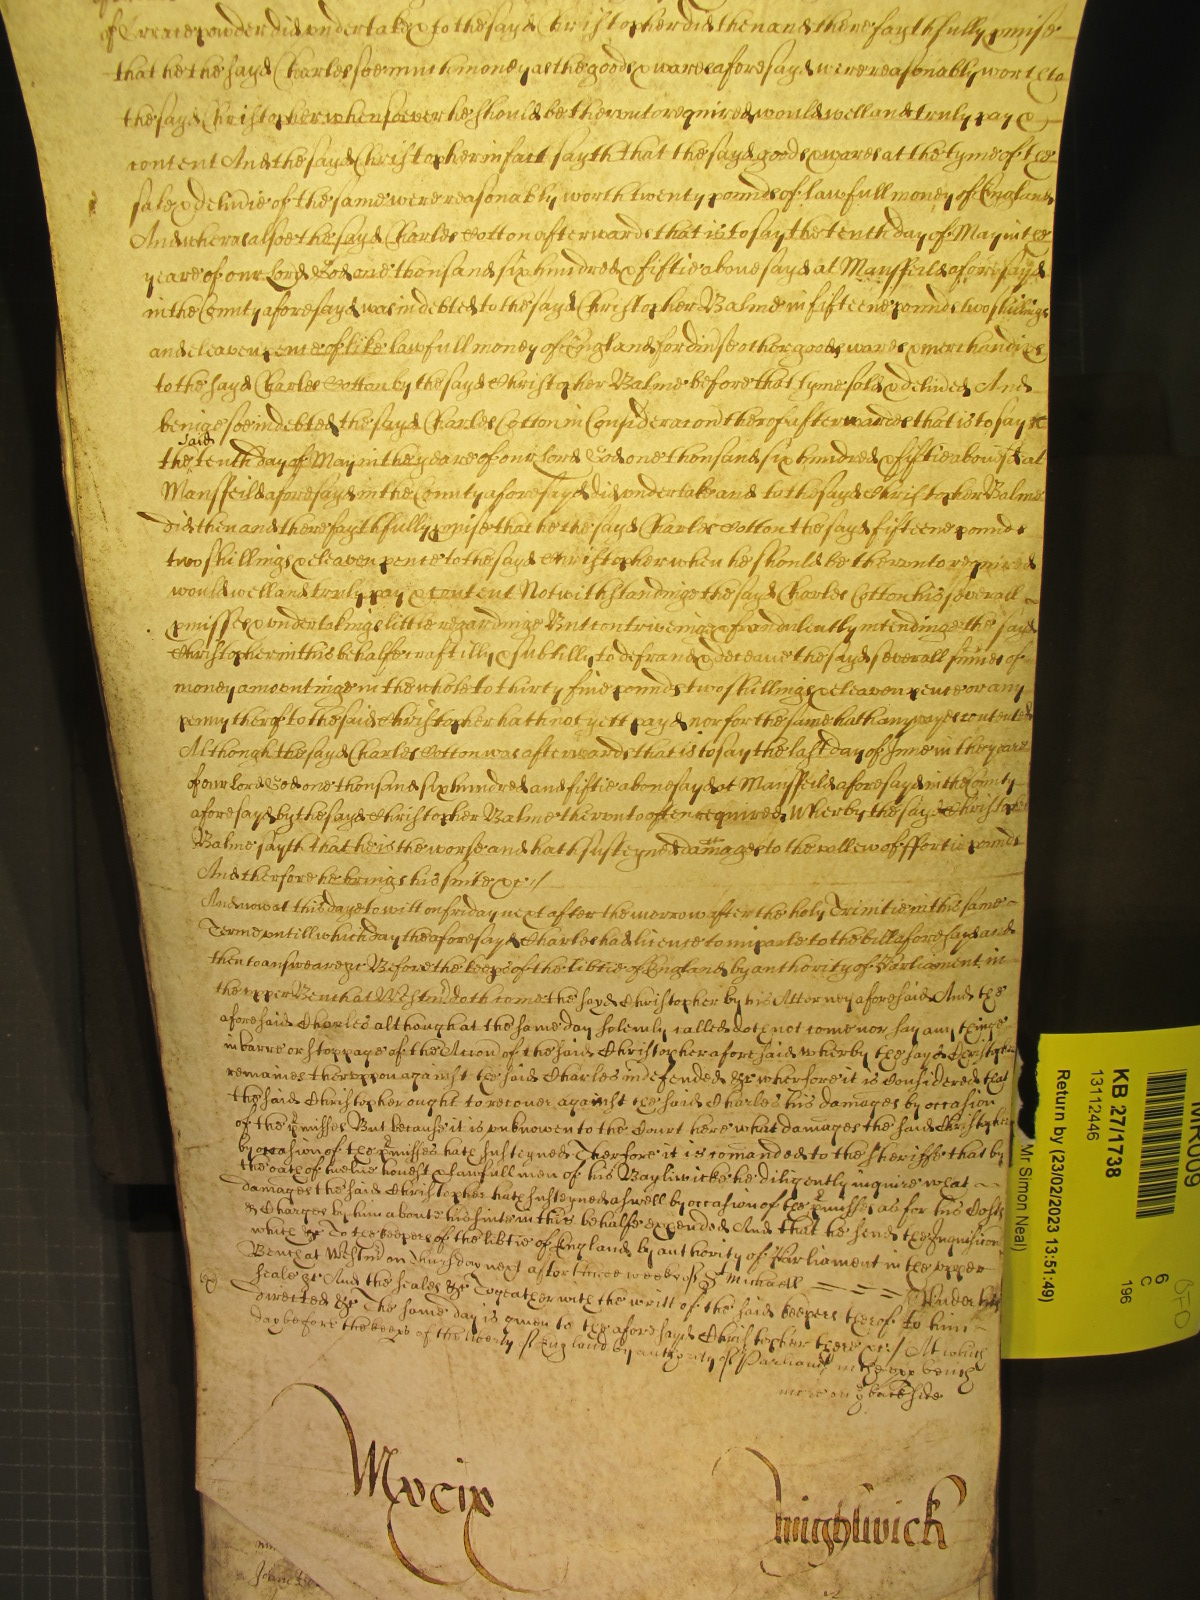 did undertake & to the sayd Christopher did then and there faythfully pmise
that he the sayd Charles soe much money as the goods & wares aforesayd were reasonably worth to
the sayd Christopher whensoever he should be therunto required would well and truly pay &
content And the sayd Christopher in fact sayth that the sayd goods & wares at the tyme of the
sale & deliuie of the same were reasonably worth twenty pounds of lawfull money of England
And wheras alsoe the sayd Charles Cotton afterwards that is to say the tenth day of May in the
yeare of our Lord God one thousand six hundred & fiftie aboue sayd at Mansfeild aforesayd
in the County aforesayd was indebted to the sayd Christopher Balme in fifteene pounds two shillings
and eleaven pence of like lawfull money of England for diuse other goods wares & merchandizes
to the sayd Charles Cotton by the sayd Christopher Balme before that tyme sold & deliued And
beinge soe indebted the sayd Charles Cotton in Consideracon therof afterwardes that is to say
the said tenth day of May in the yeare of our Lord God one thousand six hundred & fiftie at
Mansfeild aforesayd in the County aforesayd did undertake and to the sayd Christopher Balme
did then and there faythfully pmise that he the sayd Charles Cotton the sayd fifteene pounds
two shillings & eleaven pence to the sayd Christopher when he should be therunto required
would well and truly pay & content Notwithstandinge the sayd Charles Cotton his severall
pmisses & undertakings little regardinge But contriveinge & fraudulently intendinge the sayd
Christopher in this behalfe craftilly & subtilly to defraud & deceaue the sayd severall summes of
money amountinge in the whole to thirty fiue pounds two shillings & eleaven pence or any
penny therof to the said Christopher hath not yett payd nor for the same hath any wayes contented
Although the sayd Charles Cotton was afterwards that is to say the last day of June in the yeare
of our Lord God one thousand six hundred and fiftie aboue sayd at Mansfeild aforesayd in the County
aforesayd by the sayd Christopher Balme therunto often required Wherby the sayd Christopher
Balme sayth that he is the worse and hath susteyned damages to the vallew of ffortie pounds
And therfore he brings his suite &c //
And now at this day to witt on friday next after the morrow after the holy Trinitie in this same
Terme untill which day the aforesayd Charles had licence to imparle to the bill aforesayd and
then to answeare &c Before the keeps of the libtie of England by authority of Parliament in
the upper Bench at Westm doth come the sayd Christopher by his Attorney aforesaid And the
aforesaid Charles although at the same day solemly called doth not come nor say any thinge
in barre or stoppage of the Accon of the said Christopher aforesaid wherby the sayd Christopher
remaines therupon against the said Charles indefended &c wherfore it is Considered that
the said Christopher ought to recouer against the said Charles his damages by occasion
of the pmisses But because it is unknowen to the Court here what damages the said Christopher
by occasion of the pmisses hath susteyned Therfore it is comanded to the Sheriffe that by
the oath of twelue honest & lawfull men of his Bayliwicke he diligently inquire what
damages the said Christopher hath susteyned aswell by occasion of the pmisses as for his Costs
& Charges by him aboute his suite in this behalfe expended And that he send the Inquisicon
which &c To the keepers of the libtie of England by authority of Parliament in the upper
Bench at Westm on Thursday next after three weekes of St Michaell == == Under his
seale &c And the seales &c Togeather with the writt of the said keepers therof to him
directed &c The same day is giuen to the aforesayd Christopher there &c / At which
day before the keeps of the liberty of England by authority of Parliamt in the upp bench
more on ye backside
KB 27/1738
13112446
Return by (23/02/2023 13:51:49)
Mr. Simon Neal)
6
C
196